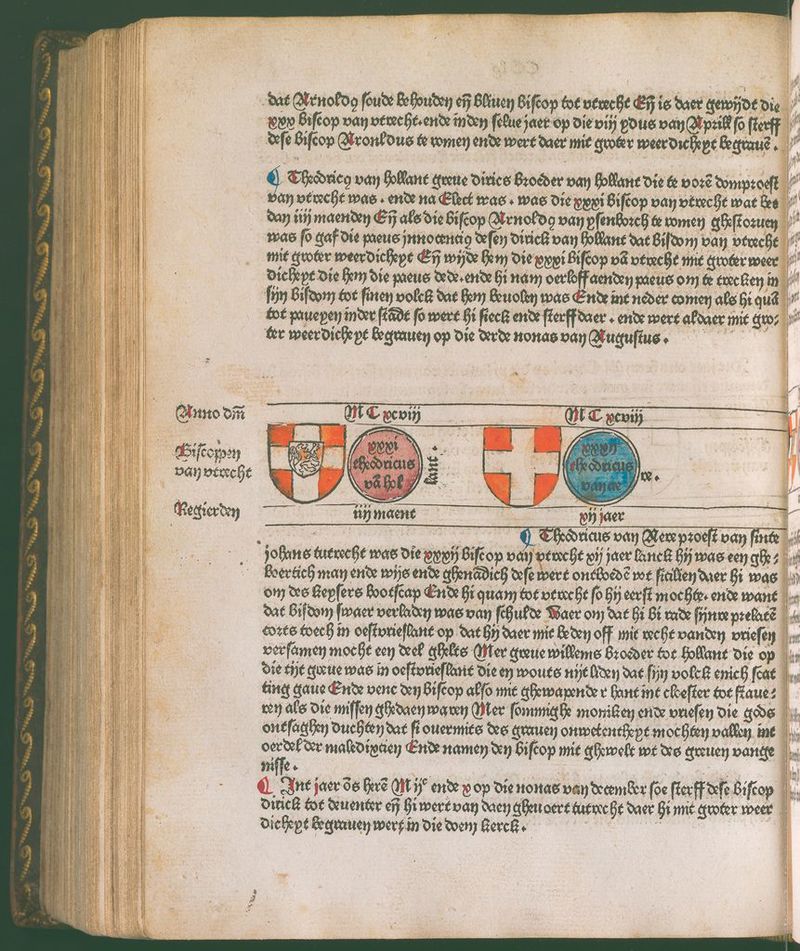 dat Arnoldꝰ soude behouden eñ bliuen biscop tot vtrecht Eñ is daer gewijdt die
xxx biscop van vtrecht. ende inden selue jaer op die viij ydus van April so sterff
dese biscop Aronldus te romen ende wert daer mit groter weerdicheyt begrauē.
Theodricꝰ van hollant greue dirics broeder van hollant die te vorē domproest
van vtrecht was. ende na Elect was. was die xxxi biscop van vtrecht wat bet
dan iiij maenden Eñ als die biscop Arnoldꝰ van ysenborch te romen ghestoruen
was so gaf die paeus jnnocenciꝰ desen dirick van hollant dat bisdom van vtrecht
mit groter weerdicheyt Eñ wijde hem die xxxi biscop vā vtrecht mit groter weer
dicheyt die hem die paeus dede. ende hi nam oerloff aenden paeus om te trecken in
sijn bisdom tot sinen volck dat hem beuolen was Ende int neder comen als hi quā
tot paueyen inder stadt so wert hi sieck ende sterff daer. ende wert aldaer mit gro⸗
ter weerdicheyt begrauen op die derde nonas van Augustus.
Anno dm̄ M C xcviij M C xcviij
Biscoppen van vtrecht
xxxi theodricus vā hol lant.
xxxij theodricus van ae re.
Regierden iiij maent xij jaer
Theodricus van Aere proest van sinte
johans tutrecht was die xxxij biscop van vtrecht xij jaer lanck hij was een ghe⸗
boertich man ende wijs ende ghenādich dese wert ontbodē wt sicilien daer hi was
om des keysers bootscap Ende hi quam tot vtrecht so hij eerst mochte. ende want
dat bisdom swaer verladen was van schulde Waer om dat hi bi rade sijnre prelatē
corts toech in oestvrieslant op dat hij daer mit beden off mit recht vanden vriesen
versamen mocht een deel ghelts Mer greue willems broeder tot hollant die op
die tijt greue was in oestvrieslant die en wouts nijt liden dat sijn volck enich scat
ting gaue Ende venc den biscop also mit ghewapender hant int cloester tot staue⸗
ren als die missen ghedaen waren Mer sommighe moniken ende vriesen die gods
ontsaghen duchten dat si ouermits des greuen onwetentheyt mochten vallen int
oerdel der maledixien Ende namen den biscop mit ghewelt wt des greuen vange
nisse.
Int jaer ōs herē M ijᶜ ende x op die nonas van december soe sterff dese biscop
dirick tot deuenter eñ hi wert van daen gheuoert tutrecht daer hi mit groter weer
dicheyt begrauen wert in die doem kerck.